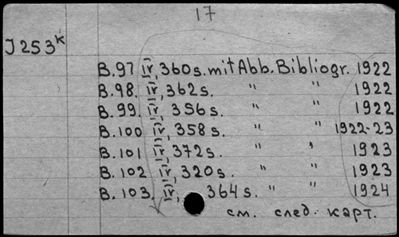 17
J253к
B.97 IV, 360s. mit Abb. Bibliogr. 1922
B.98. IV, 362s. " " 1922
B.99. IV, 356s. " " 1922
B.100 IV, 358s. " " 1922-23
B.101 IV, 372s. " " 1923
B.102 IV, 320s. " " 1923
B.103. IV, 364s. " " 1924
см. след. карт.